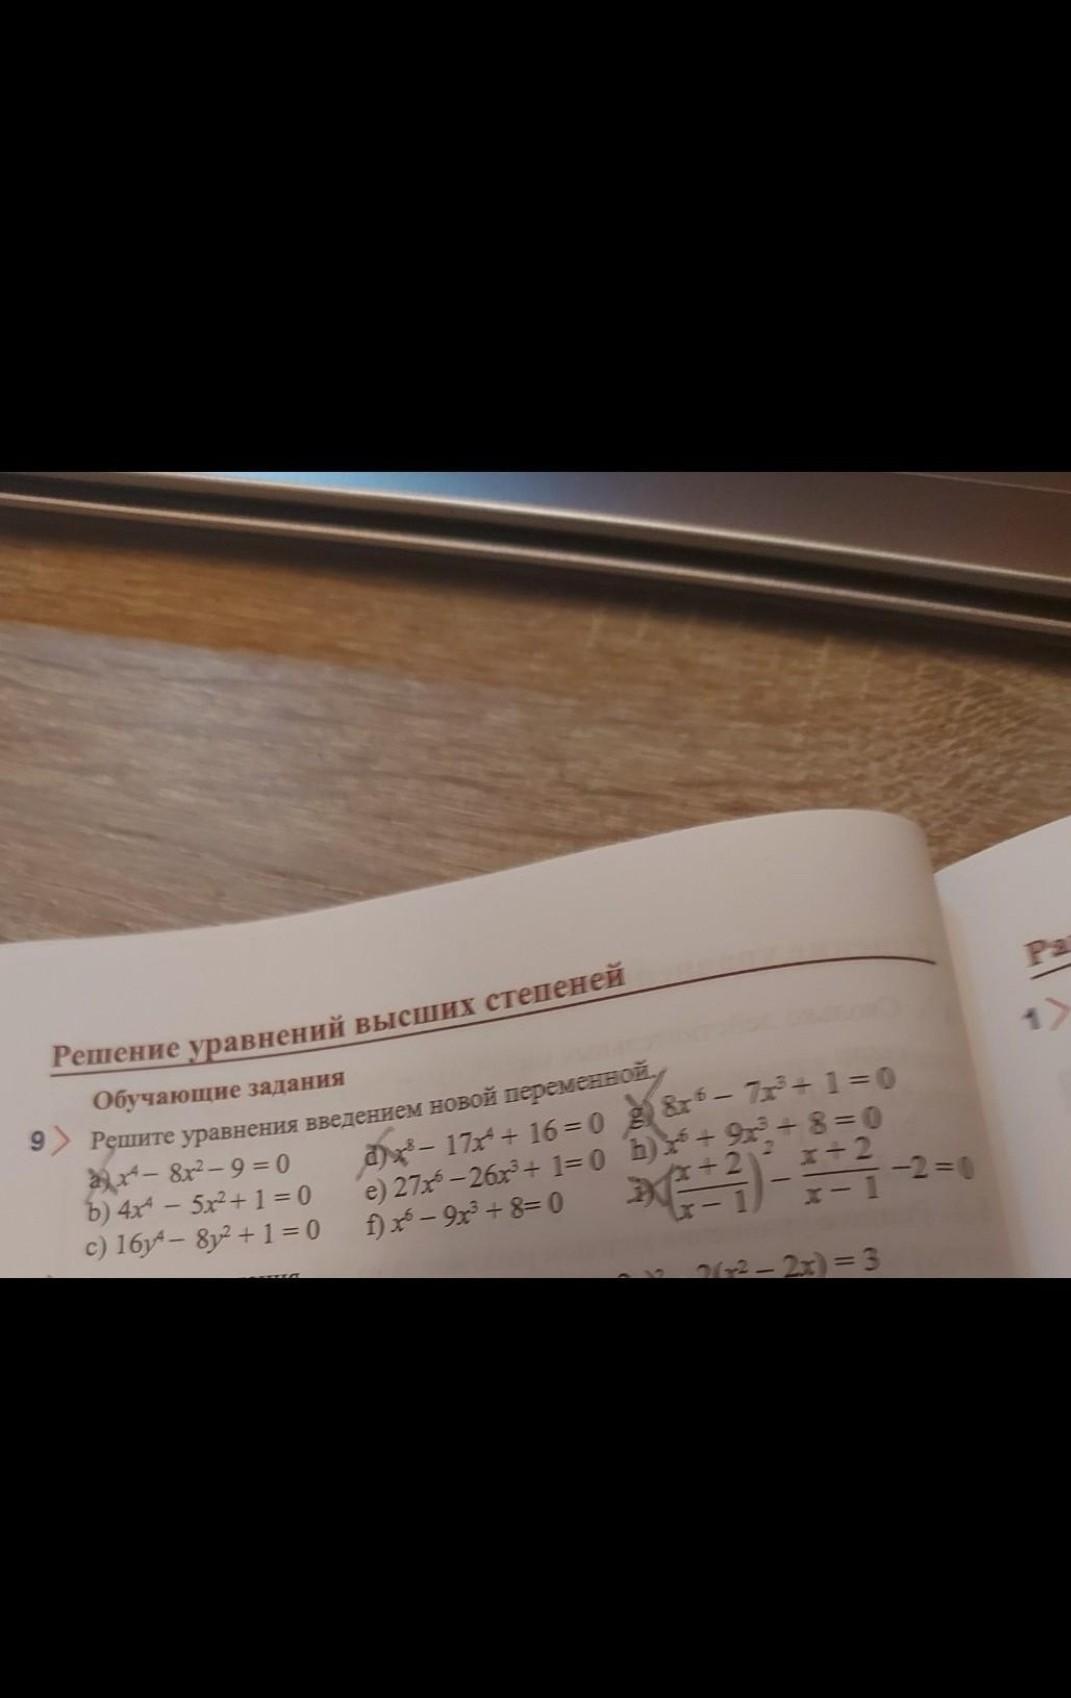 Решение уравнений высших степеней
Обучающие задания
9 Решите уравнения введением новой переменной.
a) x⁴ – 8x² – 9 = 0
b) 4x⁴ – 5x² + 1 = 0
c) 16y⁴ – 8y² + 1 = 0
d) x⁸ – 17x⁴ + 16 = 0
e) 27x⁶ – 26x³ + 1 = 0
f) x⁶ – 9x³ + 8 = 0
g) 8x⁶ – 7x³ + 1 = 0
h) x⁶ + 9x³ + 8 = 0
i) ((x + 2)/(x – 1))² – (x + 2)/(x – 1) – 2 = 0
2(x² – 2x) = 3
1